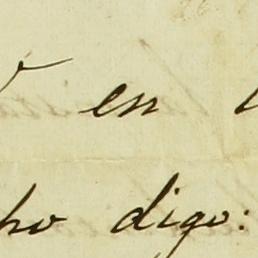 en
ho digo: